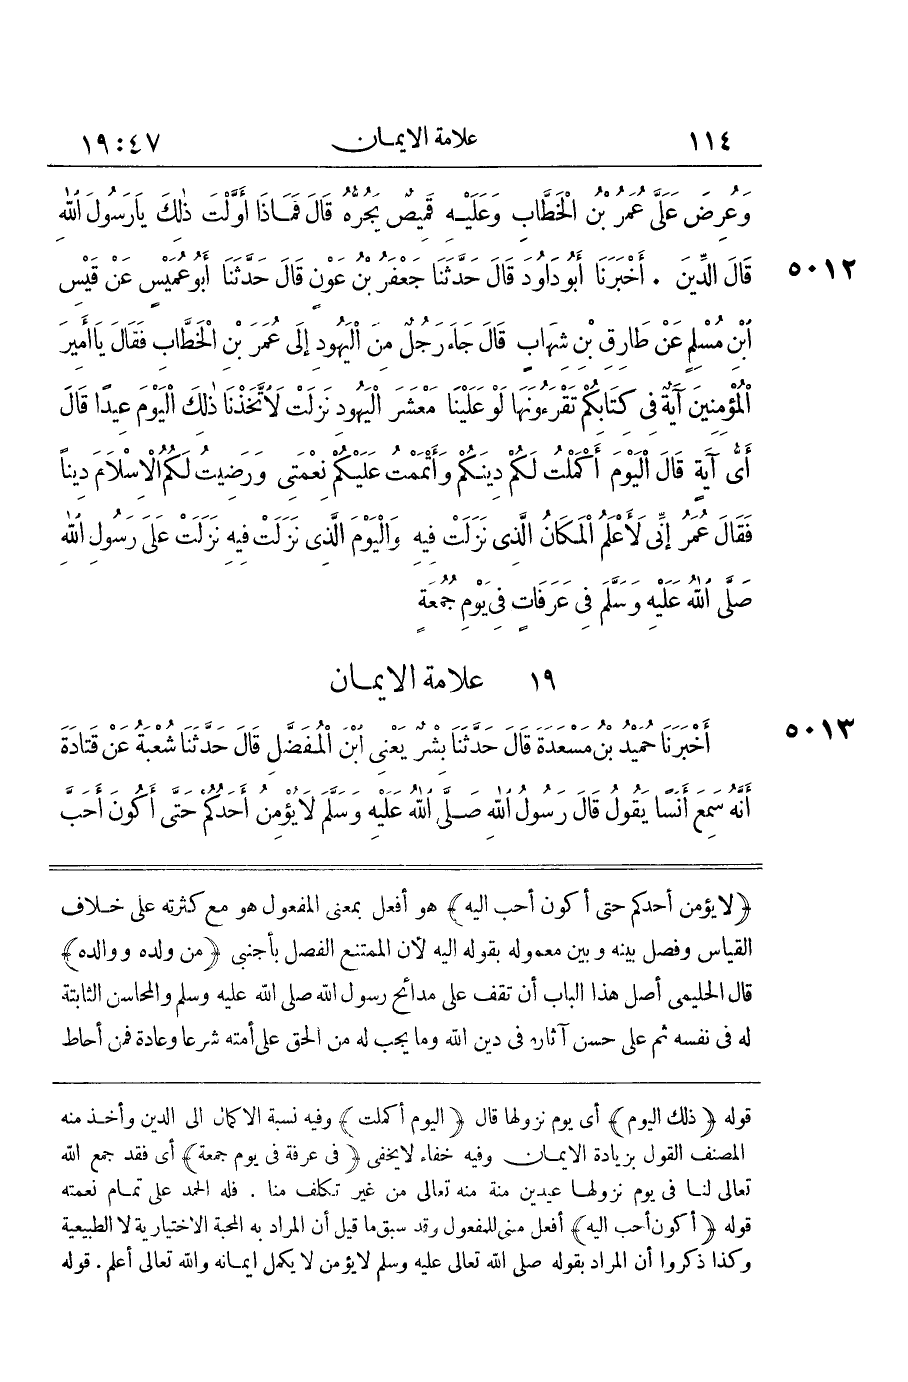 ١١٤ علامة الايمان ١٩:٤٧
وَعُرِضَ عَلَىَّ عُمَرُ بْنُ الْخَطَّابِ وَعَلَيْهِ قَمِيصٌ يَجُرُّهُ قَالَ فَمَاذَا أَوَّلْتَ ذٰلِكَ يَارَسُولَ ٱللهِ
٥٠١٢ قَالَ الدِّينَ . أَخْبَرَنَا أَبُو دَاوُدَ قَالَ حَدَّثَنَا جَعْفَرُ بْنُ عَوْنٍ قَالَ حَدَّثَنَا أَبُو عُمَيْسٍ عَنْ قَيْسِ
ٱبْنِ مُسْلِمٍ عَنْ طَارِقِ بْنِ شِهَابٍ قَالَ جَاءَ رَجُلٌ مِنَ الْيَهُودِ إِلَى عُمَرَ بْنِ الْخَطَّابِ فَقَالَ يَاأَمِيرَ
الْمُؤْمِنِينَ آيَةٌ فِى كِتَابِكُمْ تَقْرَءُونَهَا لَوْ عَلَيْنَا مَعْشَرَ الْيَهُودِ نَزَلَتْ لَاتَّخَذْنَا ذٰلِكَ الْيَوْمَ عِيدًا قَالَ
أَىُّ آيَةٍ قَالَ الْيَوْمَ أَكْمَلْتُ لَكُمْ دِينَكُمْ وَأَتْمَمْتُ عَلَيْكُمْ نِعْمَتِى وَرَضِيتُ لَكُمُ الْإِسْلَامَ دِينًا
فَقَالَ عُمَرُ إِنِّى لَأَعْلَمُ الْمَكَانَ الَّذِى نَزَلَتْ فِيهِ وَالْيَوْمَ الَّذِى نَزَلَتْ فِيهِ نَزَلَتْ عَلَى رَسُولِ ٱللهِ
صَلَّى ٱللهُ عَلَيْهِ وَسَلَّمَ فِى عَرَفَاتٍ فِى يَوْمِ جُمُعَةٍ
١٩ علامة الايمان
٥٠١٣ أَخْبَرَنَا حُمَيْدُ بْنُ مَسْعَدَةَ قَالَ حَدَّثَنَا بِشْرٌ يَعْنِى ٱبْنَ الْمُفَضَّلِ قَالَ حَدَّثَنَا شُعْبَةُ عَنْ قَتَادَةَ
أَنَّهُ سَمِعَ أَنَسًا يَقُولُ قَالَ رَسُولُ ٱللهِ صَلَّى ٱللهُ عَلَيْهِ وَسَلَّمَ لَا يُؤْمِنُ أَحَدُكُمْ حَتَّى أَكُونَ أَحَبَّ
﴿لا يؤمن أحدكم حتى أكون أحب اليه﴾ هو أفعل بمعنى المفعول هو مع كثرته على خلاف
القياس وفصل بينه وبين معموله بقوله اليه لأن الممتنع الفصل بأجنبي ﴿من ولده ووالده﴾
قال الحليمى أصل هذا الباب أن تقف على مدائح رسول الله صلى الله عليه وسلم والمحاسن الثابتة
له فى نفسه ثم على حسن آثاره فى دين الله وما يجب له من الحق على أمته شرعا وعادة فمن أحاط
قوله ﴿ذلك اليوم﴾ أى يوم نزولها قال ﴿اليوم أكملت﴾ وفيه نسبة الاكمال الى الدين وأخذ منه
المصنف القول بزيادة الايمان وفيه خفاء لايخفى ﴿فى عرفة فى يوم جمعة﴾ أى فقد جمع الله
تعالى لنا فى يوم نزولها عيدين منة منه تعالى من غير تكلف منا . فله الحمد على تمام نعمته
قوله ﴿أكون أحب اليه﴾ أفعل مبنى للمفعول وقد سبق ما قيل أن المراد به المحبة الاختيارية لا الطبيعية
وكذا ذكروا أن المراد بقوله صلى الله تعالى عليه وسلم لايؤمن لا يكمل ايمانه والله تعالى أعلم . قوله